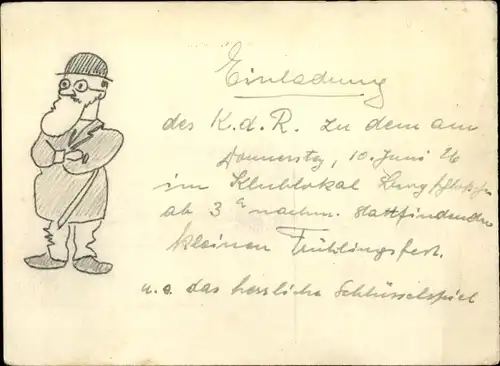 Einladung
des K.d.R. zu dem am
Donnerstag, 10. Juni 26
im Klublokal
ab 3 h nachm. stattfindenden
kleinen Frühlingsfest.
u.a. das herrliche Schlüsselspiel